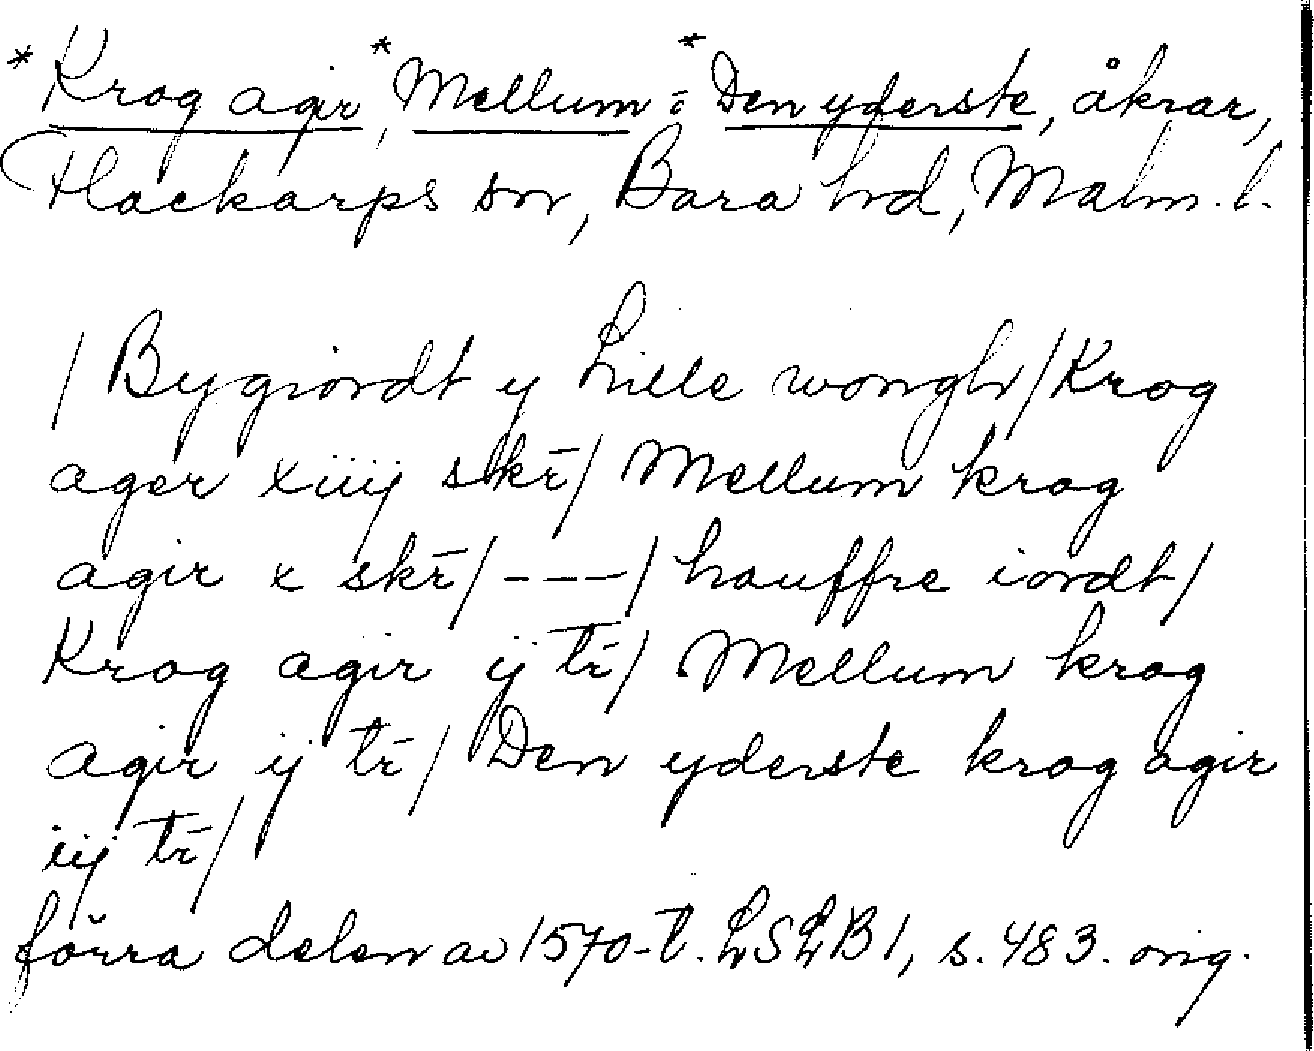 *Krog agir, *Mellum = *Den yderste, åkrar,
Flackarps sn, Bara hd, Malm. l.
/ Bygiordt y Lille wongh/ Krog
ager xiiij skr̄/ Mellum krog
agir x skr̄/ ---/ houffre iordt/
Krog agir ij tr̄/ Mellum krog
agir ij tr̄/ Den yderste krog agir
iij tr̄/
förra delen av 1570-t. LSLB 1, s. 483. orig.